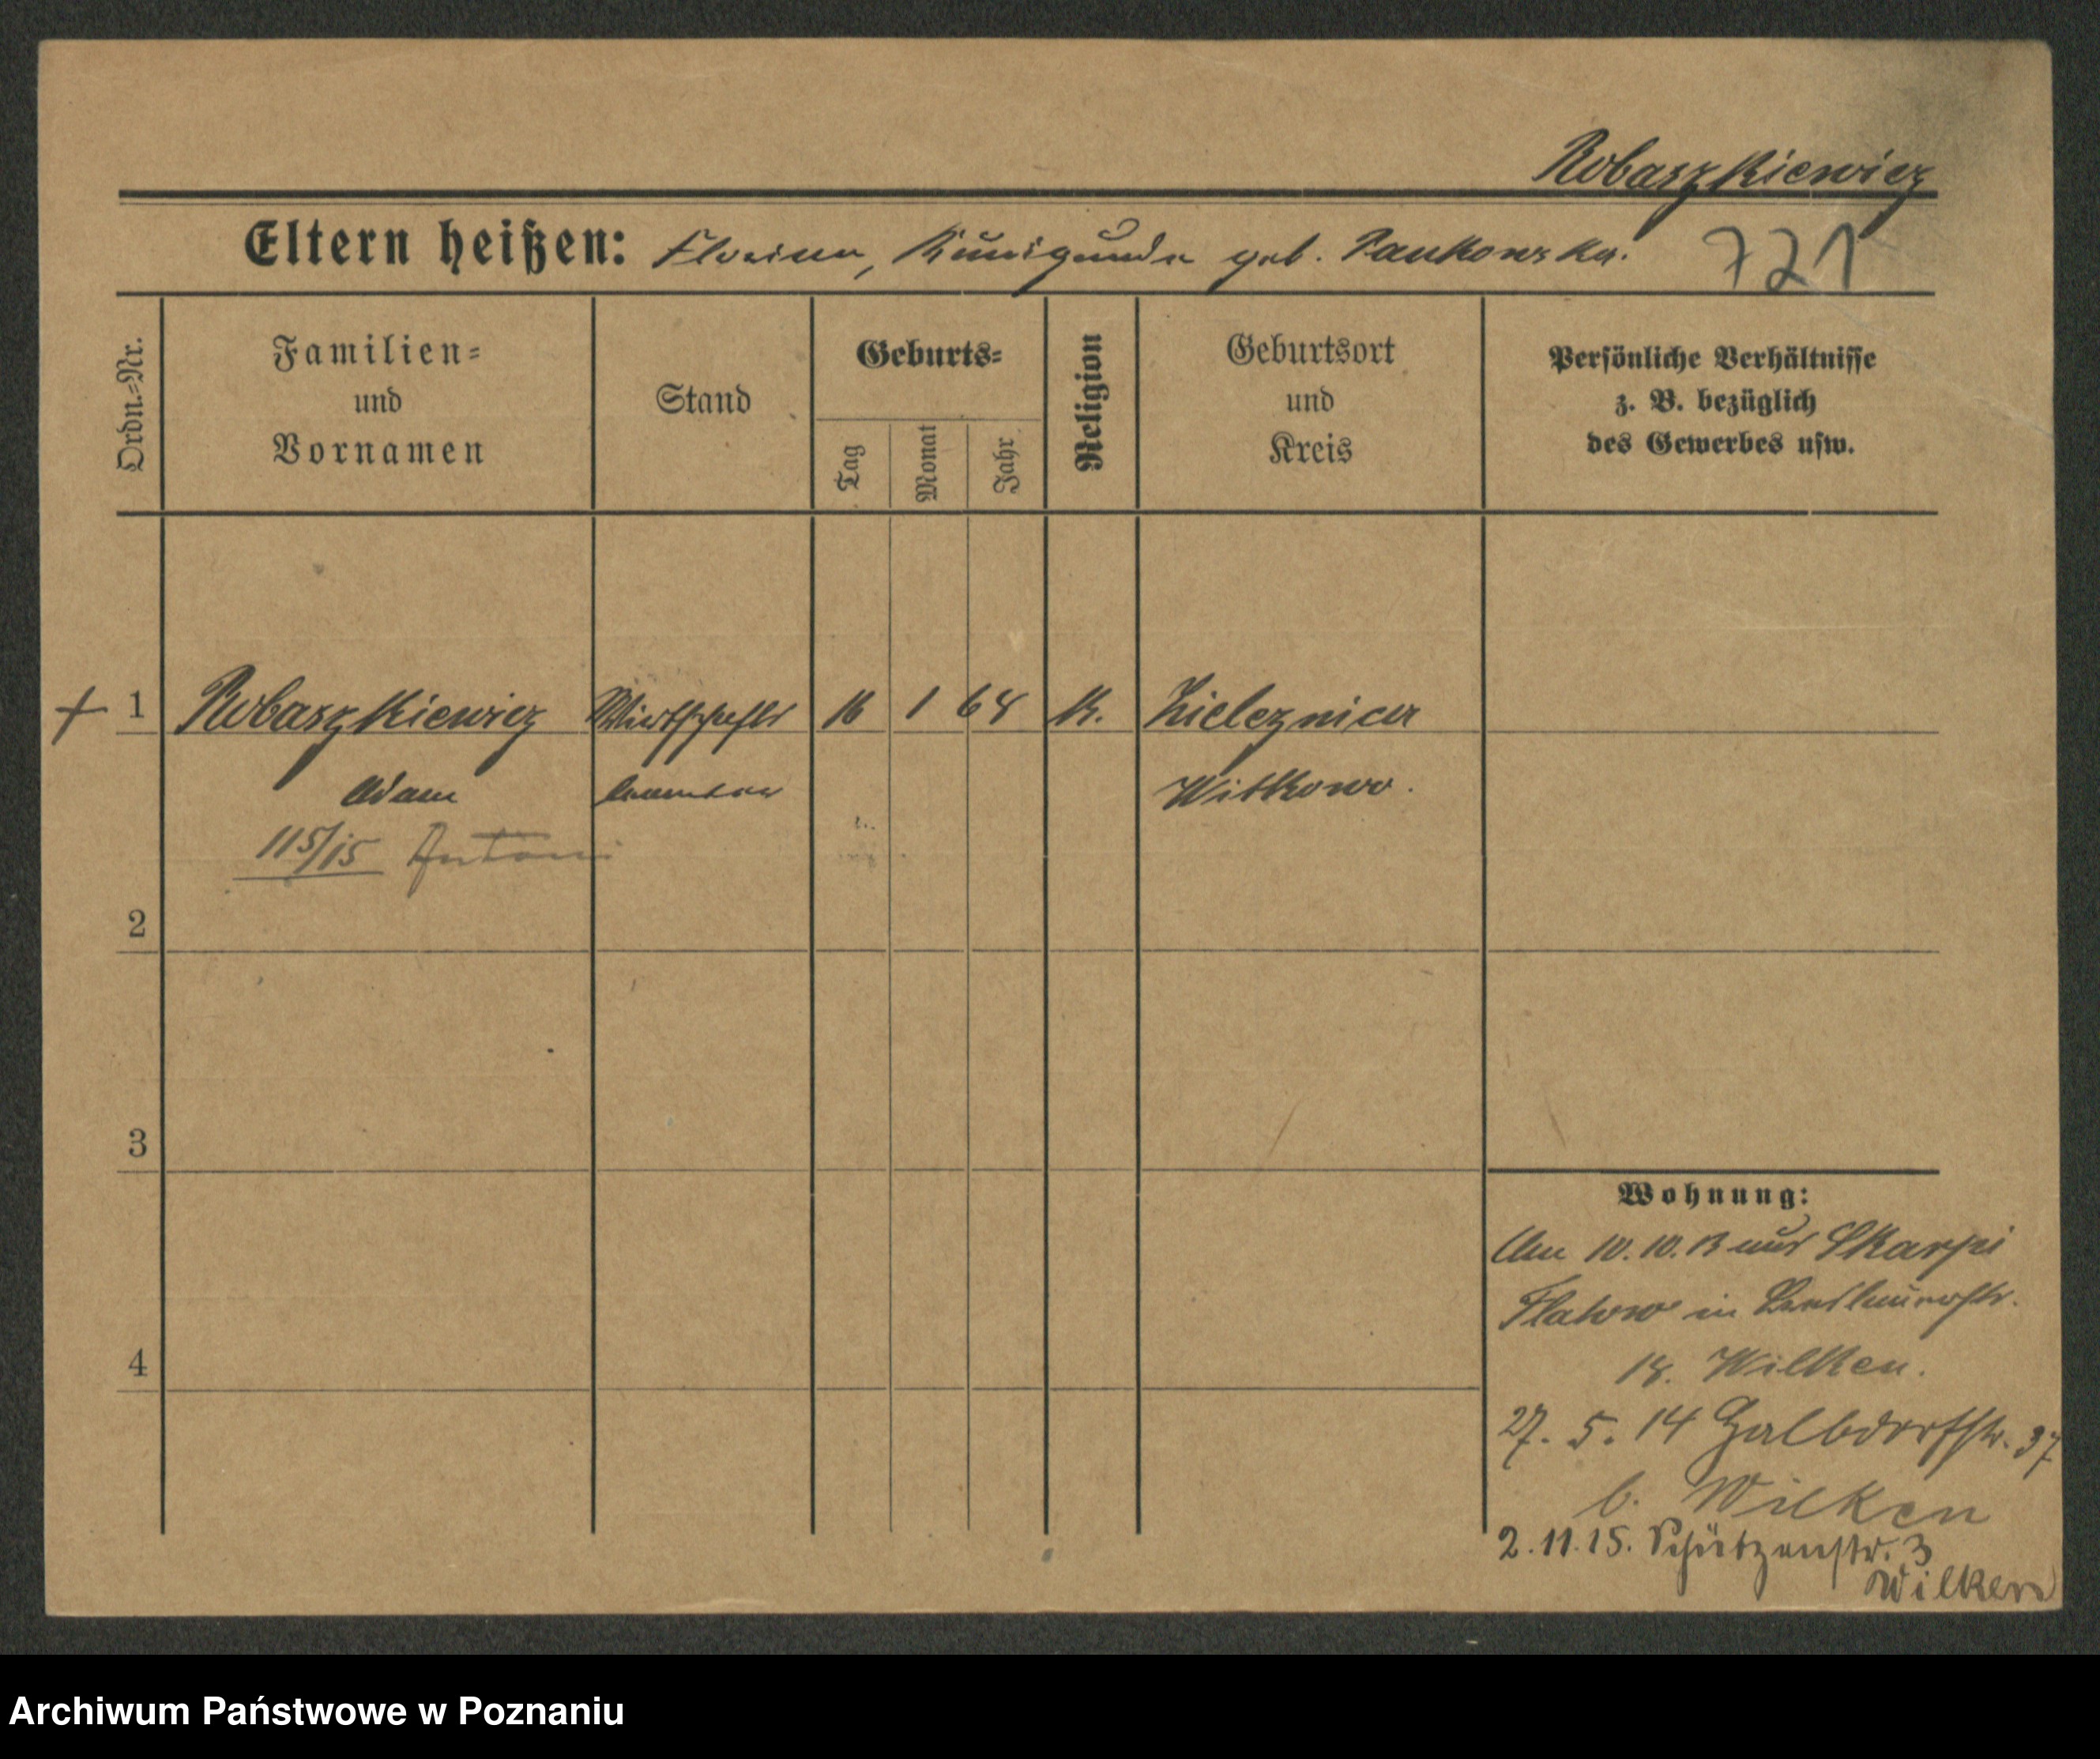 Robaszkiewicz
Eltern heißen: Florian, Kunigunde geb. Pankowska.
721
Ordn.=Nr.
Familien=
und
Vornamen
Stand
Geburts=
Tag
Monat
Jahr
Religion
Geburtsort
und
Kreis
Persönliche Verhältnisse
z. B. bezüglich
des Gewerbes usw.
+ 1 Robaszkiewicz Wirtschafts 16 1 68 K. Zieleznica
Adam beamter Witkowo.
115/15 Antoni
2
3
4
Wohnung:
Am 10.10.13 aus Skarpi
Flatow in
18. Wilken.
27. 5. 14 Halbdorfstr. 37
b. Wilken
2.11.15. Schützenstr. 3
Wilken
Archiwum Państwowe w Poznaniu